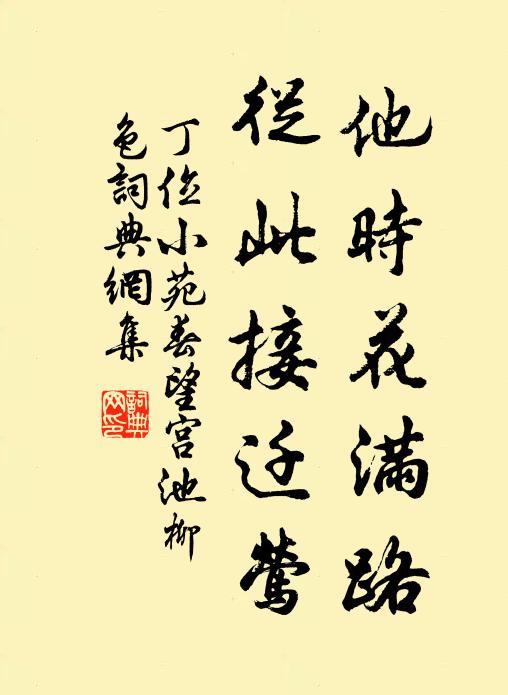 他時花滿路
從此接迁鶯
丁位小苑春望宫池柳
色詞典網集
詞典网印